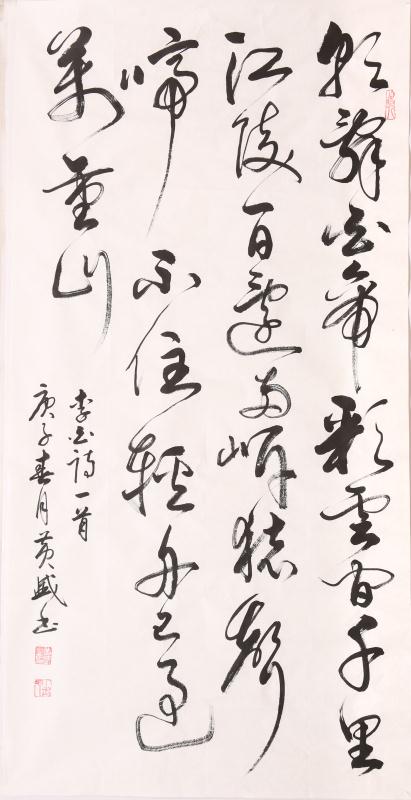 朝辭白帝彩雲間千里
江陵一日還兩岸猿聲
啼不住輕舟已過
萬重山
李白詩一首
庚子春月黃盛書